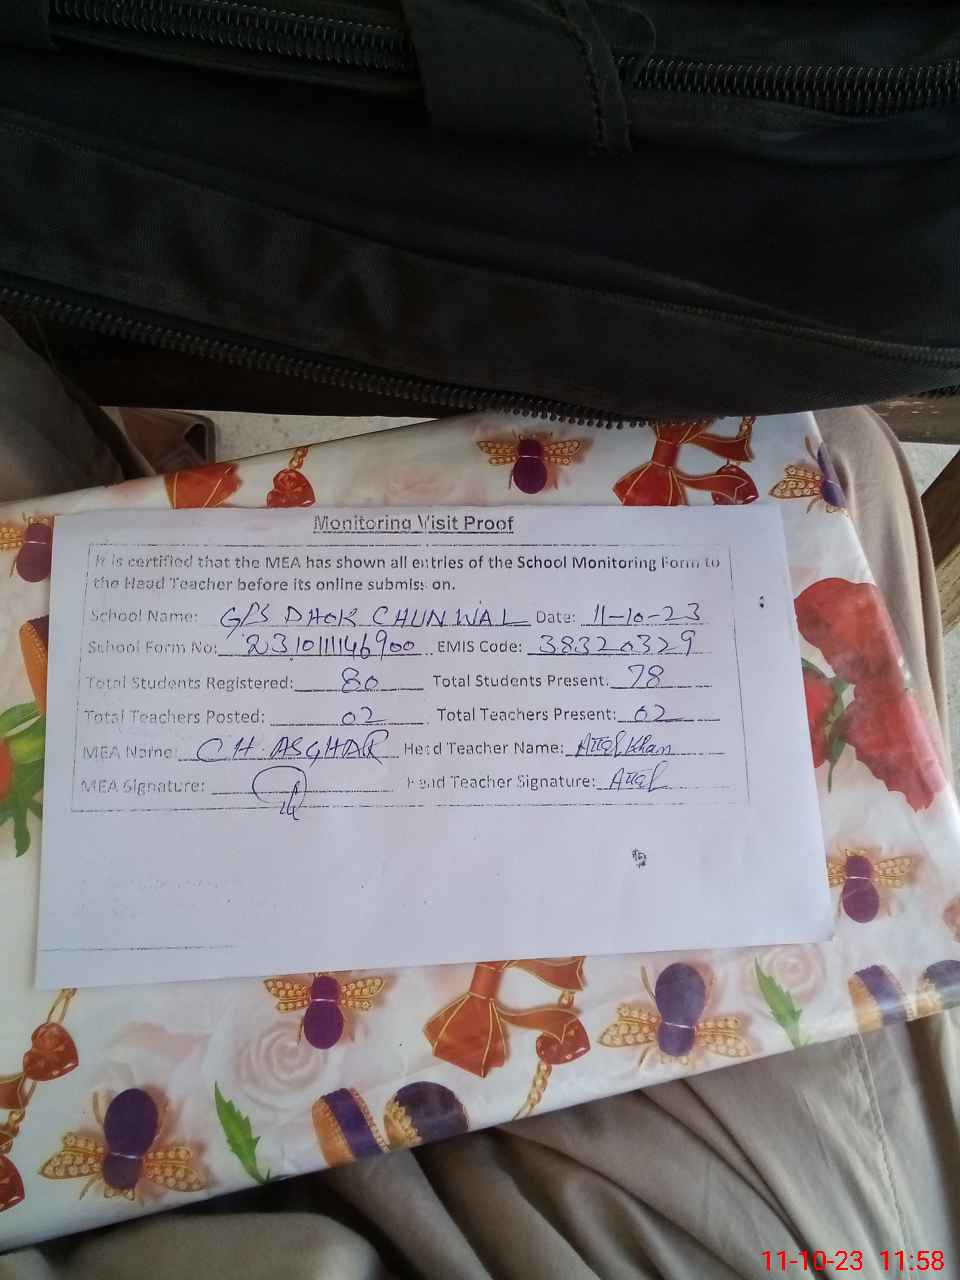 Monitoring Visit Proof
It is certified that the MEA has shown all entries of the School Monitoring Form to
the Head Teacher before its online submission.
School Name: G/S DHOK CHUNWAL Date: 11-10-23
School Form No: 2310111146900 EMIS Code: 38320329
Total Students Registered: 80 Total Students Present: 78
Total Teachers Posted: 02 Total Teachers Present: 02
MEA Name: CH. ASGHAR Head Teacher Name: Khan
MEA Signature: Head Teacher Signature:
11-10-23 11:58